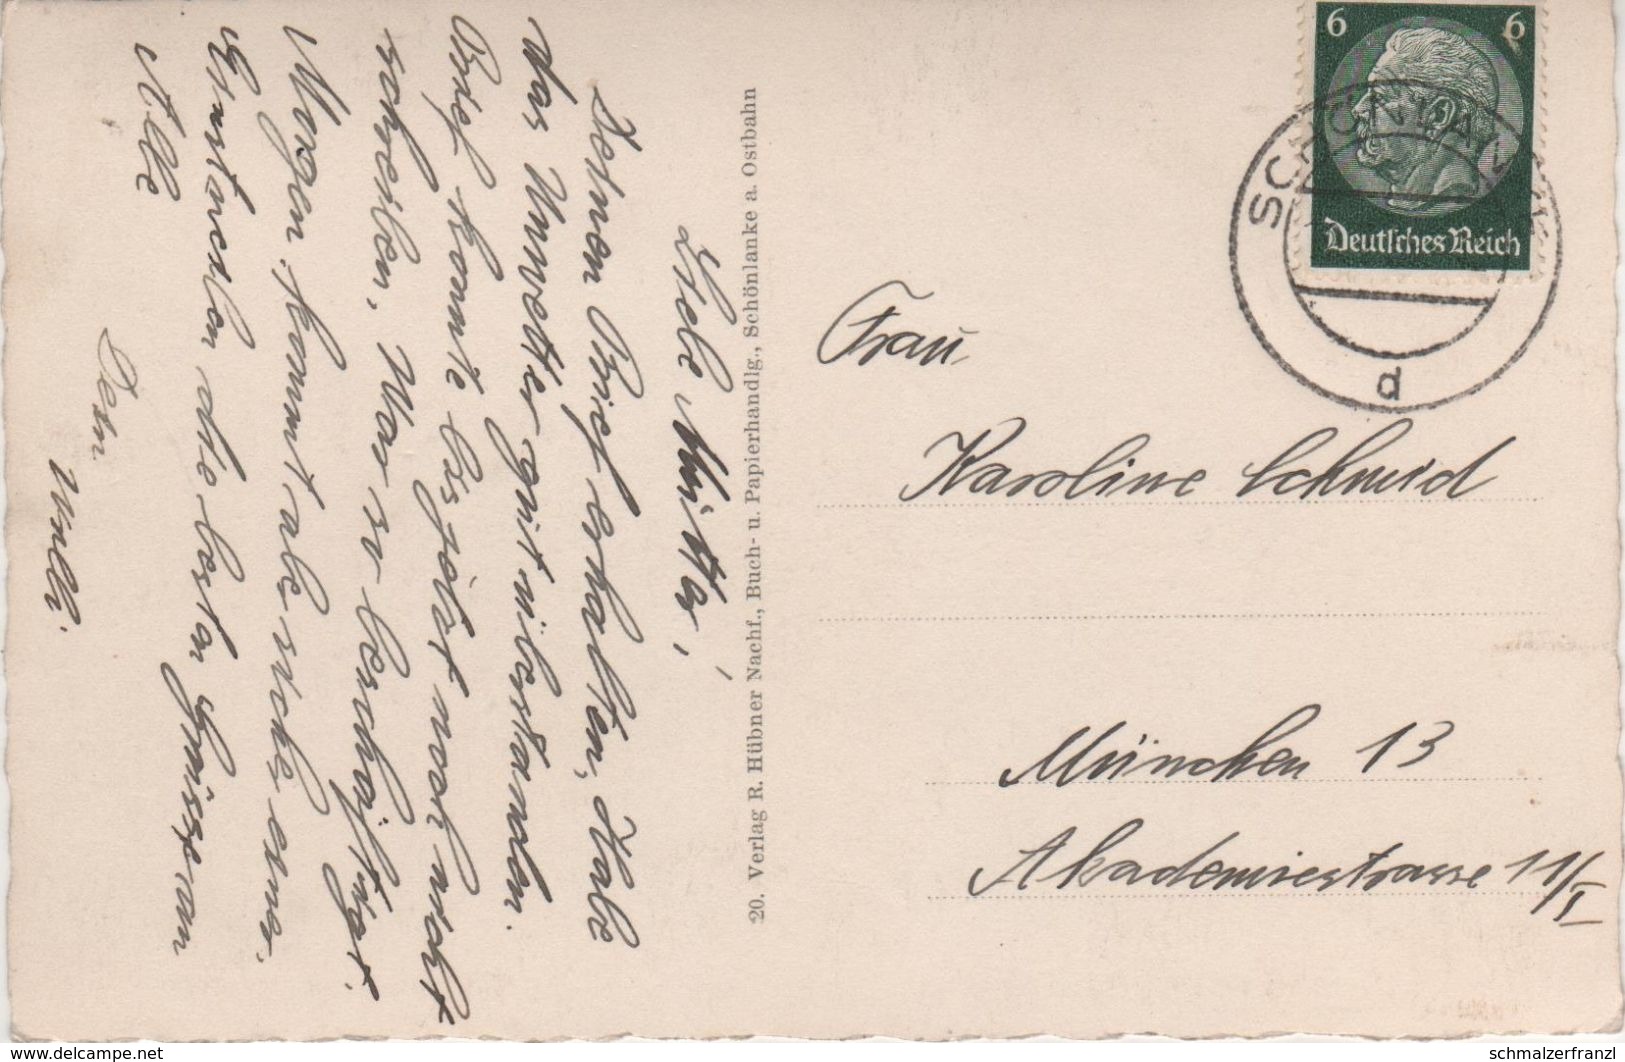 Liebe Mutter,
Deinen Brief erhalten, Habe
das Unwetter gut überstanden.
Brief konnte bis jetzt noch nicht
schreiben, War so beschäftigt.
Morgen kommt aber sicher einer.
Einstweilen die besten Grüsse an
Alle
Dein
Willi.
20. Verlag R. Hübner Nachf., Buch- u. Papierhandlg., Schönlanke a. Ostbahn
6 6
Deutsches Reich
SCHÖNLANKE
d
Frau
Karoline Schmid
München 13
Akademiestrasse 11/I
www.delcampe.net
schmalzerfranzl